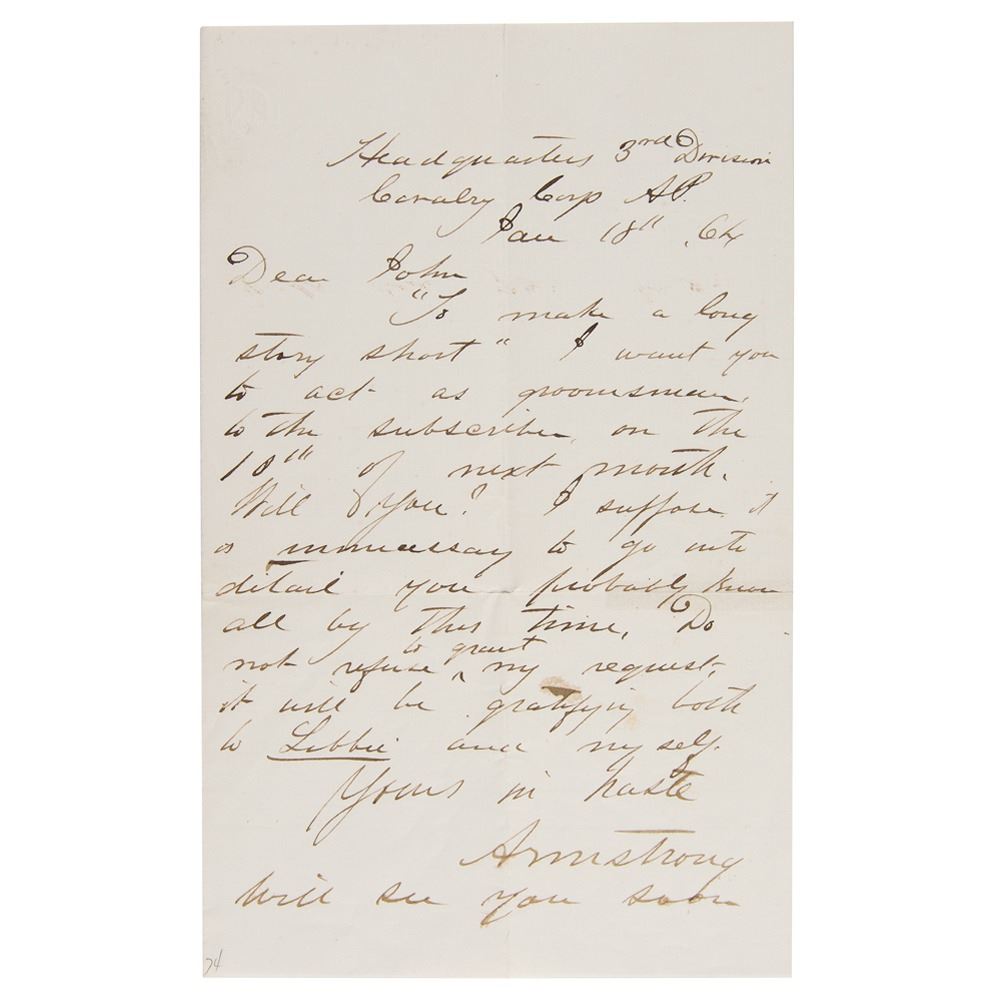 Headquarters 3rd Division
Cavalry Corp AP.
Jan 18th .64
Dear John
"To make a long
story short" I want you
to act as groomsman,
to the subscriber, on the
10th of next month.
Will you? I suppose it
is unnecessay to go into
detail you probably know
all by this time, Do
not refuse ‸ to grant my request,
it will be gratifying both
to Libbie and myself.
Yours in haste
Armstrong
Will see you soon
74